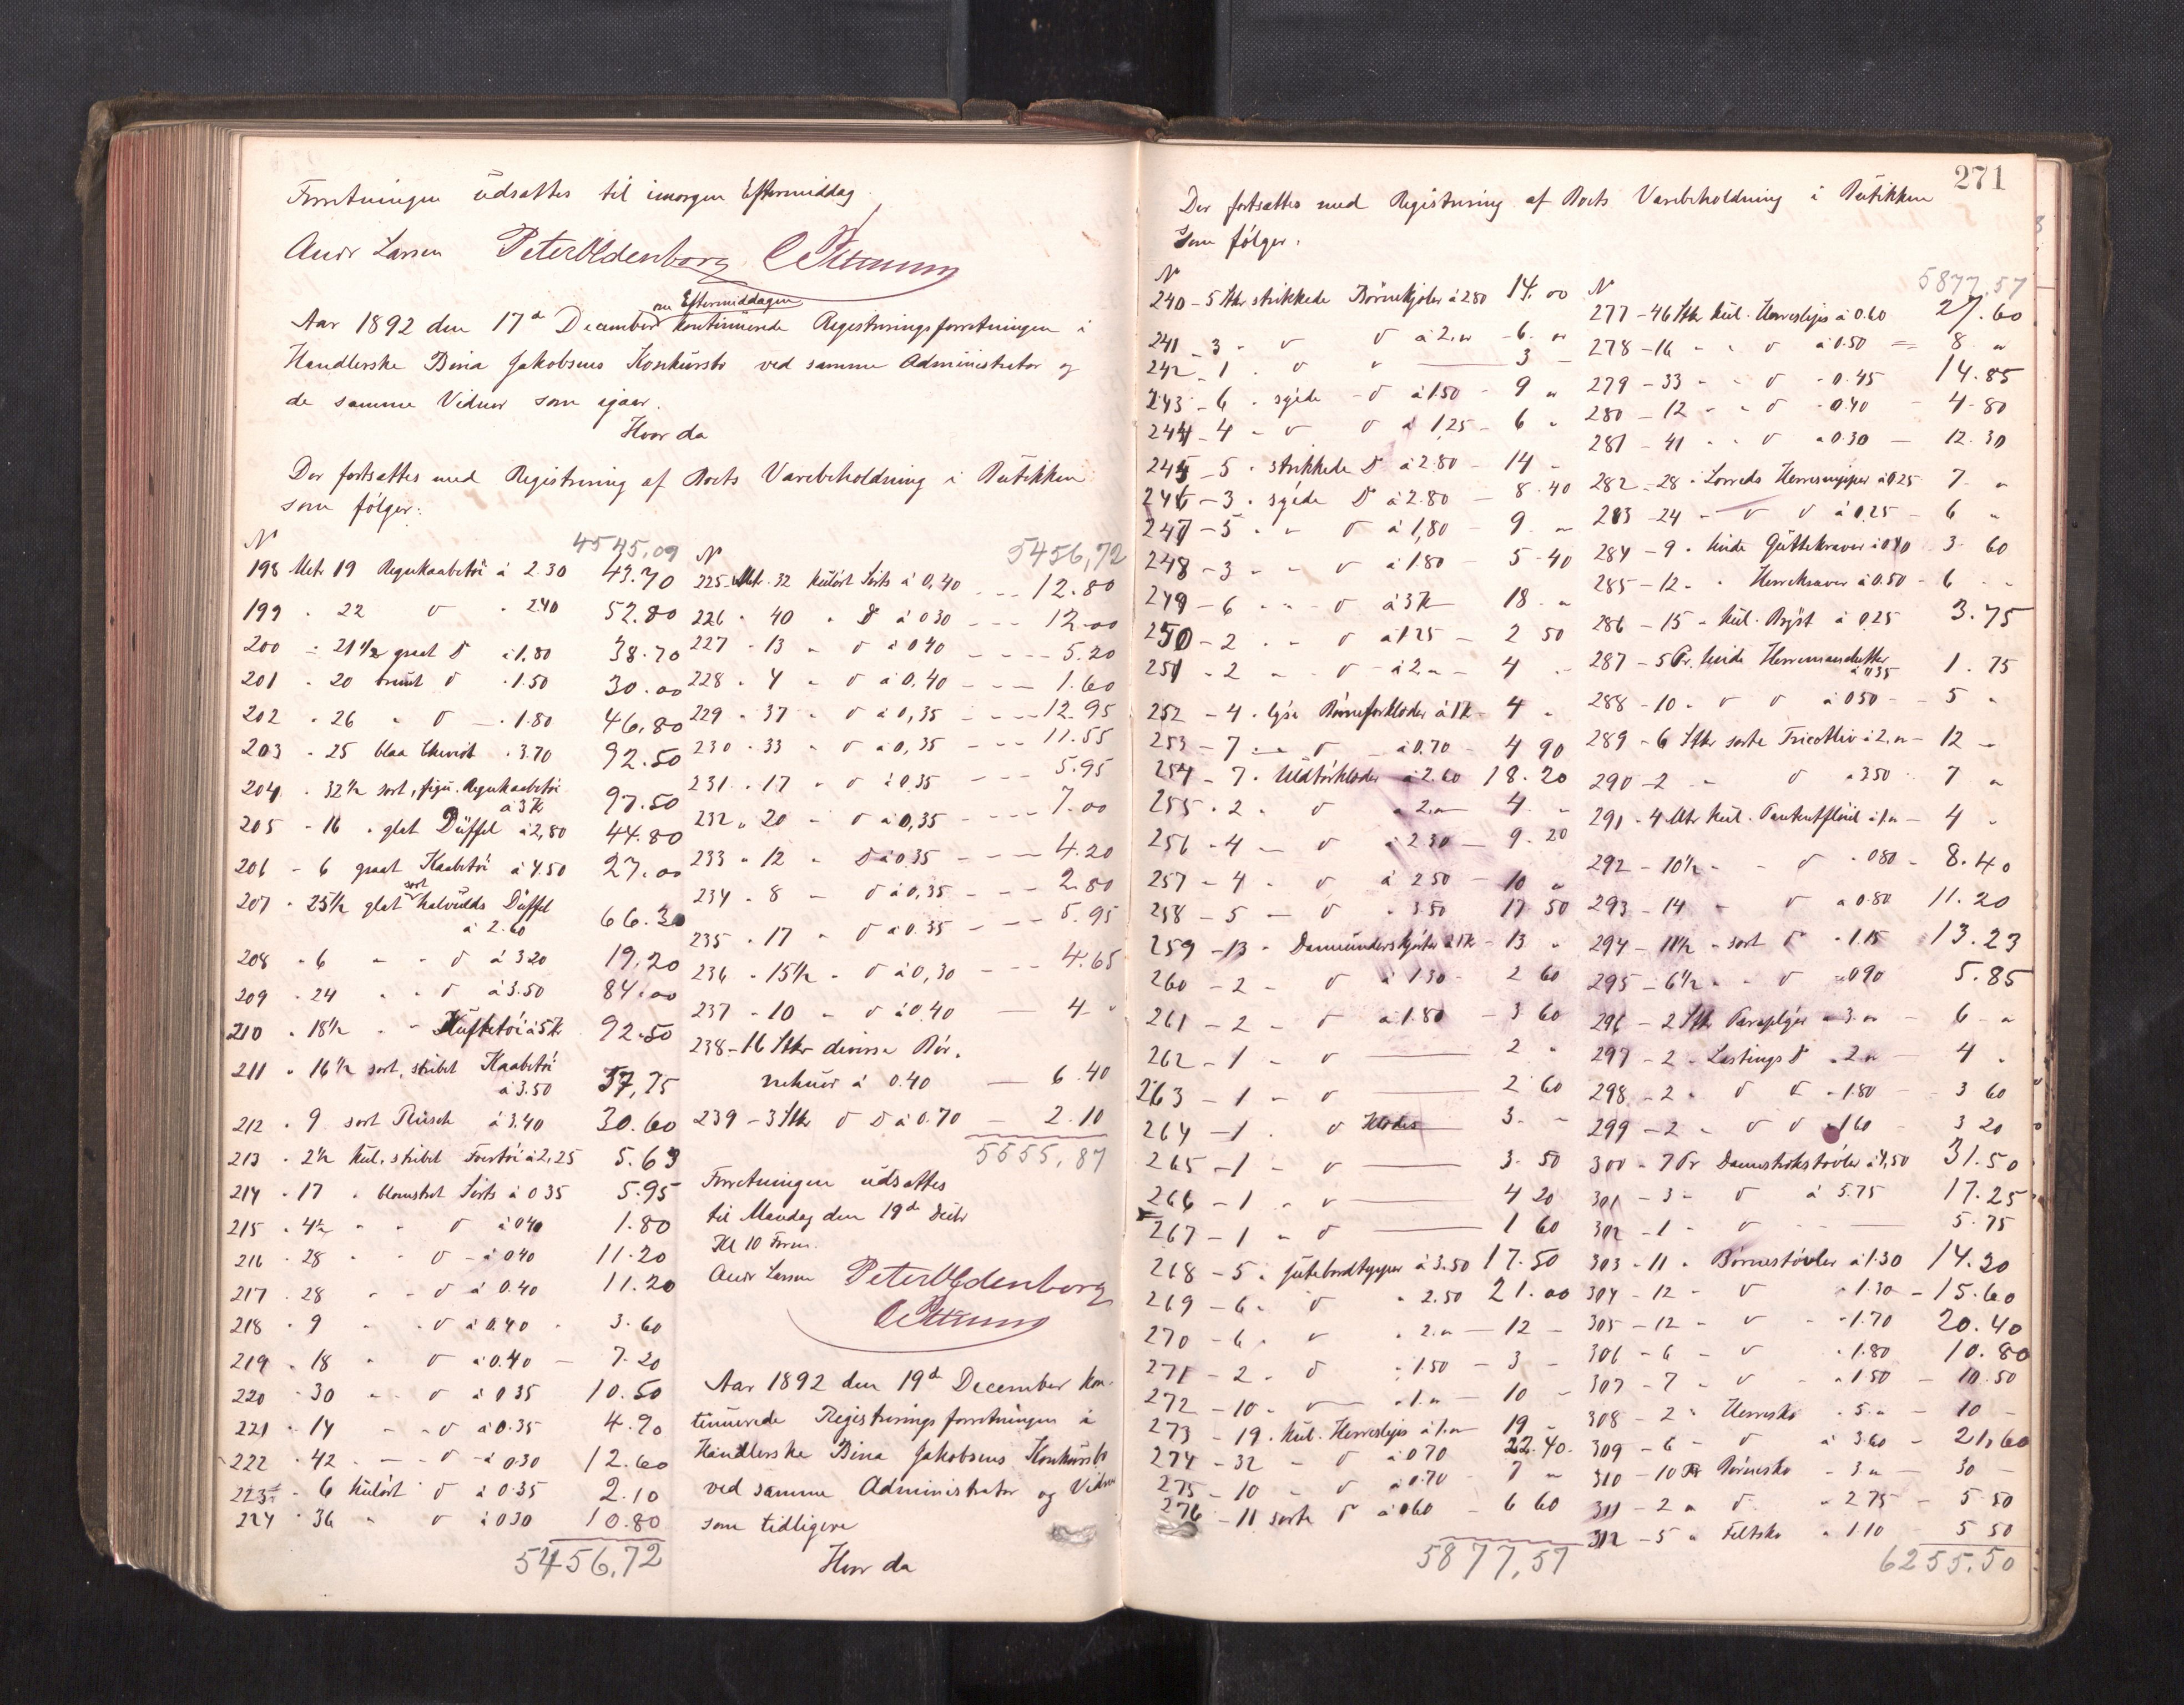 Forretningen udsattes til imorgen Eftermiddag.
Andr Larsen Peter Oldenborg
om Eftermiddagen
Aar 1892 den 17de December kontinuerede Registreringsforretningen i
Handlerske Bina Jakobsens Konkursbo ved samme Administrator og
de samme Vidner som igaar.
Hvor da
Der fortsattes med Registrering af Boets Varebeholdning i Butikken
som følger:
N 4545,09
198 Metr. 19 Regnkaabetøi à 2.30 43.70
199 " 22 " 2.40 52.80
200 " 21 1/2 graat D à 1.80 38.70
201 " 20 brunt D " 1.50 30.00
202 " 26 " D " 1.80 46.80
203 " 25 blaa Cheviot " 3.70 92.50
204 " 32 1/2 sort, figu. Regnkaabetøi
à 3 K 97.50
205 " 16 " glat Düffel à 2,80 44.80
206 " 6 graat Kaabetøi à 4.50 27.00
207 " 25 1/2 glat sort halvulds Düffel
à 2.60 66.30
208 " 6 " " D à 3.20 19.20
209 " 24 " " D à 3.50 84.00
210 " 18 1/2 " " à 5 K 92.50
211 " 16 1/2 sort, stribet Kaabetøi
à 3.50 57,75
212 " 9 sort Plüsch à 3.40 30.60
213 " 2 1/2 kul. stribet Foertøi à 2,25 5.63
214 " 17 " blomstret Sirts à 0 35 5.95
215 " 4 1/2 " " D à 0 40 1.80
216 " 28 " " D à 0 40 11.20
217 " 28 " " D à 0.40 11.20
218 " 9 " " D à 0.40 3.60
219 " 18 " D à 0.40 7.20
220 " 30 " " D à 0 35 10.50
221 " 14 " " D à 0.35 4.90
222 " 42 " " D à 0 30 12.60
223 " 6 kulört D à 0.35 2.10
224 " 36 " D à 0 30 10.80
5456,72
N 5456,72
225 Mtr. 32 kulört Sirts à 0,40 12.80
226 " 40 " D à 0 30 12.00
227 " 13 " D à 0 40 5.20
228 " 4 " D à 0,40 1.60
229 " 37 " D à 0,35 12.95
230 " 33 " D à 0,35 11.55
231 " 17 " D à 0.35 5.95
232 " 20 " D à 0,35 7.00
233 " 12 " D à 0.35 4.20
234 " 8 " D à 0,35 2.80
235 " 17 " D à 0.35 5.95
236 " 15 1/2 " D à 0,30 4.65
237 " 10 " D à 0.40 4 "
238 - 16 Stkr diverse Bör.
nehuer à 0.40 6.40
239 - 3 Stk D D à 0.70 2.10
5555,87
Forretningen udsattes
til Mandag den 19de Decbr
Kl 10 Form.
Andr Larsen Peter Oldenborg
Aar 1892 den 19de December kon-
tinuerede Registreringsforretningen i
Handlerske Bina Jakobsens Konkursbo
ved samme Administrator og Vidner
som tidligere
Hvor da
271
Der fortsattes med Registrering af Boets Varebeholdning i Butikken
som følger:
N
240 - 5 Stkr strikkede Børnekjoler à 2 80 14.00
241 - 3 " D D à 2. " 6. "
242 - 1 " D " 3 -
243 - 6 " syede D à 1.50 9 "
244 - 4 " D D à 1,25 6 "
245 - 5 " strikkede D à 2.80 14 -
246 - 3 " syede D à 2.80 8.40
247 - 5 " " D à 1,80 9 "
248 - 3 " " D à 1.80 5.40
249 - 6 " " D à 3 K 18 "
250 - 2 " " D à 1 25 2 50
251 - 2 " " D à 2 " 4 "
252 - 4 " lyse Børneforklæder à 1 K 4 "
253 - 7 " D à 0.70 4 90
254 - 7 " Uldtørklæder à 2.60 18.20
255 - 2 " D à 2. " 4 "
256 - 4 " D à 2 30 9.20
257 - 4 " D à 2 50 10 "
258 - 5 " D " 3.50 17 50
259 - 13 " Dameunderskjørter à 1 K 13 "
260 - 2 " D à 1 30 2 60
261 - 2 " D à 1.80 3 60
262 - 1 " D 2 "
263 - 1 " D 2 60
264 - 1 " D 3 -
265 - 1 " D 3. 50
266 - 1 " D 4 20
267 - 1 " D 1 60
268 - 5 " Jutebordtepper à 3.50 17.50
269 - 6 " D " 2.50 21.00
270 - 6 " D " 2. " 12 -
271 - 2 " D " 1.50 3 -
272 - 10 " D " 1. " 10 -
273 - 19 " kul. Herreslips à 1. " 19 "
274 - 32 " D à 0 70 22.40
275 - 10 " D à 0.70 7 "
276 - 11 sorte D à 0 60 6 60
5877,57
N 5877.57
277 - 46 Stkr kul. Herreslips à 0.60 27.60
278 - 16 " " D à 0.50 8 "
279 - 33 " " D " 0.45 14.85
280 - 12 " " D " 0.40 4.80
281 - 41 " " D " 0.30 12.30
282 - 28 " Lerreds Herresnipper à 0.25 7 "
283 - 24 " D D à 0.25 6 "
284 - 9 " hvide Guttekraver à 0.40 3.60
285 - 12 " " Herrekraver à 0.50 6 "
286 - 15 " kul. Bryst à 0.25 3.75
287 - 5 Pr. hvide Herremanchetter
à 0 35 1.75
288 - 10 " D D à 0 50 5 "
289 - 6 Stkr sorte Tricotliv à 2. " 12 "
290 - 2 " D à 3 50 7 "
291 - 4 Mtr kul. Patentfløiel à 1. " 4 "
292 - 10 1/2 " " D " 0 80 8.40
293 - 14 " D à 0.80 11.20
294 - 11 1/2 " sort D " 1.15 13.23
295 - 6 1/2 " " D " 0 90 5.85
296 - 2 Stkr Paraplyer à 3. " 6 "
297 - 2 " Lastings D " 2 " 4 "
298 - 2 " D D " 1.80 3 60
299 - 2 " D D " 1 60 3 20
300 - 7 Pr Dametrækstøvler à 4,50 31.50
301 - 3 " D à 5.75 17.25
302 - 1 " D 5.75
303 - 11 " Børnestøvler à 1.30 14.30
304 - 12 " D " 1.30 15.60
305 - 12 " D " 1.70 20.40
306 - 6 " D " 1.80 10.80
307 - 7 " D " 1 50 10.50
308 - 2 " Herresko " 5. " 10 -
309 - 6 " D à 3.60 21,60
310 - 10 Pr Børnesko " 3. " 30 -
311 - 2 " D " 2 75 5.50
312 - 5 " Filtsko " 1.10 5 50
6255,50